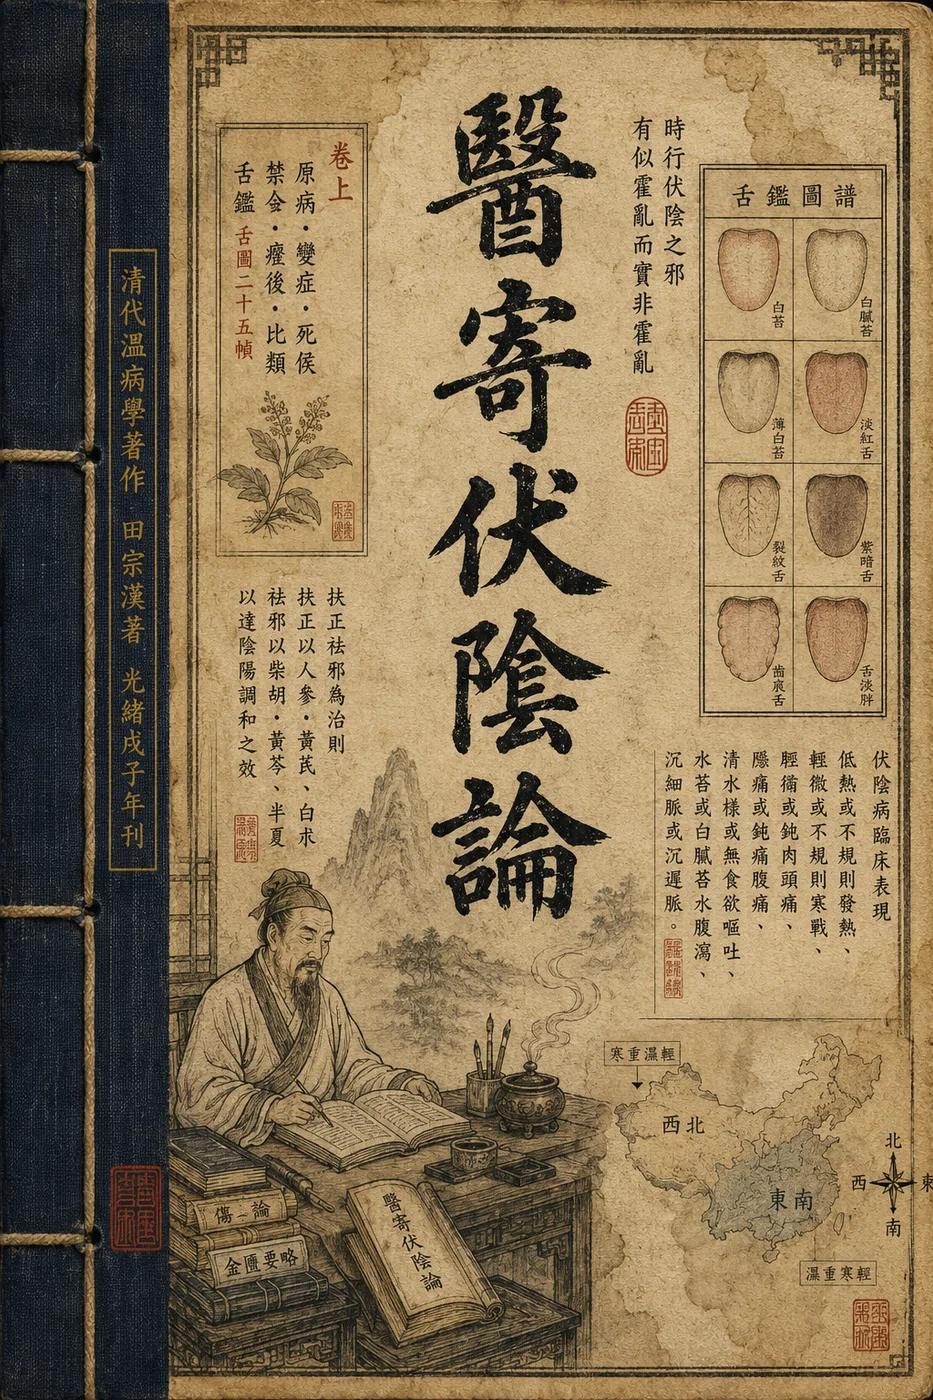 醫寄伏陰論
時行伏陰之邪
有似霍亂而實非霍亂
卷上
原病・變症・死侯
禁㑒・瘥後・比類
舌鑑 舌圖二十五幀
舌鑑圖譜
白苔
白膩苔
薄白苔
淡紅舌
裂紋舌
紫暗舌
齒痕舌
舌淡胖
扶正祛邪為治則
扶正以人參・黃芪、白朮
祛邪以柴胡・黃芩、半夏
以達陰陽調和之效
伏陰病臨床表現
低熱或不規則發熱、
輕微或不規則寒戰、
或鈍肉頭痛、
痛或鈍痛腹痛、
清水樣或無食欲嘔吐、
水苔或白膩苔水腹瀉、
沉細脈或沉遲脈。
清代溫病學著作 田宗漢著 光緒戊子年刊
寒重濕輕
西北
東南
濕重寒輕
北
西
東
南
傷 論
金匱要略
醫寄伏陰論